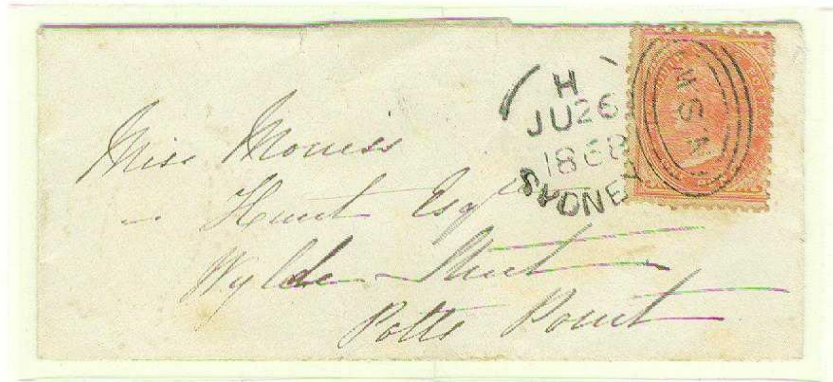 H
JU 26
1868
SYDNEY
NSW
Miss Morriss
- Hunt Esqre
Wylde Street
Potts Point